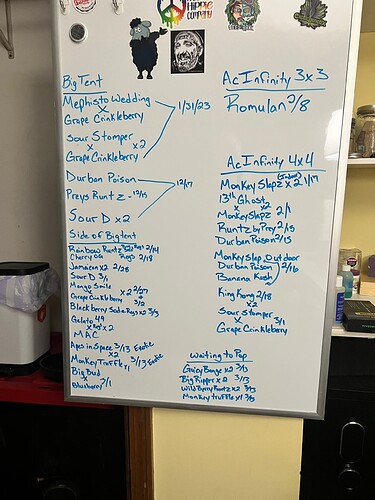 HIPPIE
COMPANY
Big Tent
Mephisto Wedding
X
Grape Crinkleberry
1/31/23
Sour Stomper
X x2
Grape Crinkleberry
Durban Poison
12/17
Preys Runtz - 12/15
Sour D x2
Side of Bigtent
Rainbow Runtz 3/21 Regs 2/14
Cherry OG Regs 2/18
Jamaican x2 2/28
Sour D 3/1
Mango Smile
X x2 2/27
Grape Crinkleberry 3/2
Blackberry Soda Regs x3 3/3
Gelato 49
X Regs x2
MAC
Apes in Space 3/13 Exotic
x2
Monkey Truffle, 3/13 Exotic
Big Bud
X
Blueberry 7/1
Ac Infinity 3x3
Romulan 2/8
Ac Infinity 4x4
Monkey Slapz x2 (Indoor) 1/17
13th Ghost
X x2
Monkey Slapz 2/1
Runtz by Prey 2/15
Durban Poison 2/15
Monkey Slap, Outdoor
Durban Poison 2/16
Banana Kody
King Kong 2/18
Sour Stomper
X 3/1
Grape Crinkleberry
Waiting to Pop
Gooey Bange x2 3/13
Big Ripper x2 3/13
Wild Berry Runtz x2 3/13
Monkey truffle x1 3/13